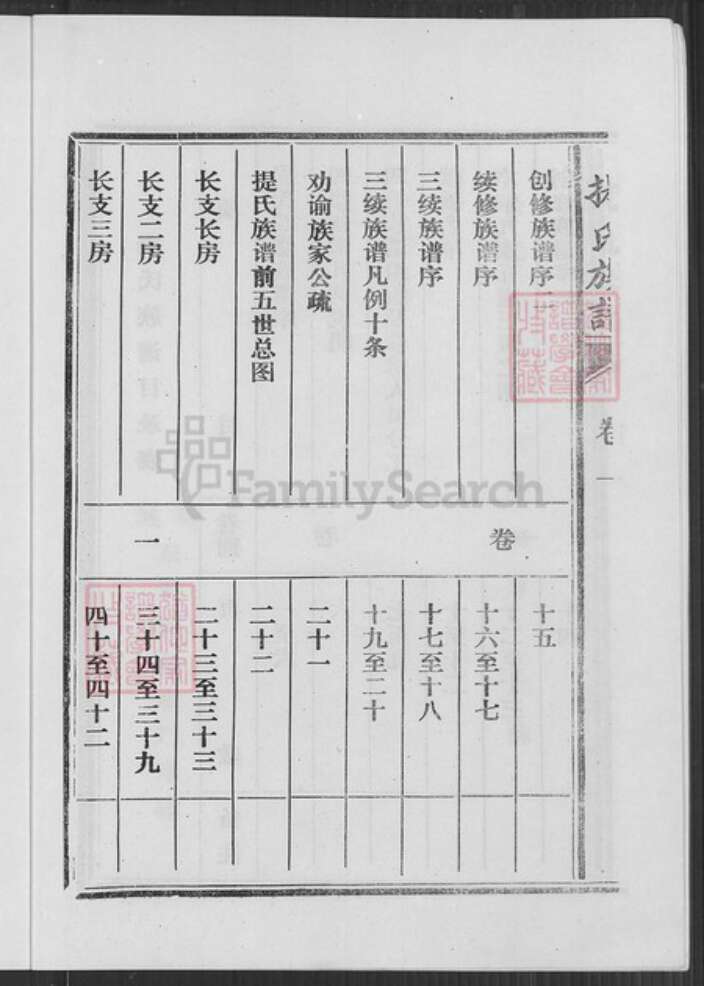 提氏族谱 卷一
创修族谱序
续修族谱序
三续族谱序
三续族谱凡例十条
劝谕族家公疏
提氏族谱前五世总图
长支长房
长支二房
长支三房
卷一
十五
十六至十七
十七至十八
十九至二十
二十一
二十二
二十三至三十三
三十四至三十九
四十至四十二
FamilySearch